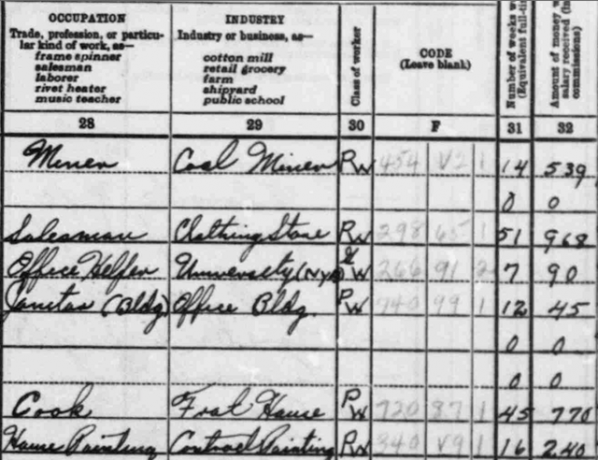 OCCUPATION
Trade, profession, or particu-
lar kind of work, as—
frame spinner
salesman
laborer
rivet heater
music teacher
INDUSTRY
Industry or business, as—
cotton mill
retail grocery
farm
shipyard
public school
Class of worker
CODE
(Leave blank)
Number of weeks
(Equivalent full-ti
Amount of money
salary received (In
commissions)
28 29 30 F 31 32
Miner Coal Miner PW 454 V2 1 14 539
0 0
Salesman Clothing Store PW 298 65 1 51 968
Office Helper University (NYA) GW 266 91 2 7 90
Janitor (Bldg) Office Bldg PW 740 99 1 12 45
0 0
0 0
Cook Frat House PW 720 87 1 45 770
House Painting Contract Painting PW 340 V9 1 16 240